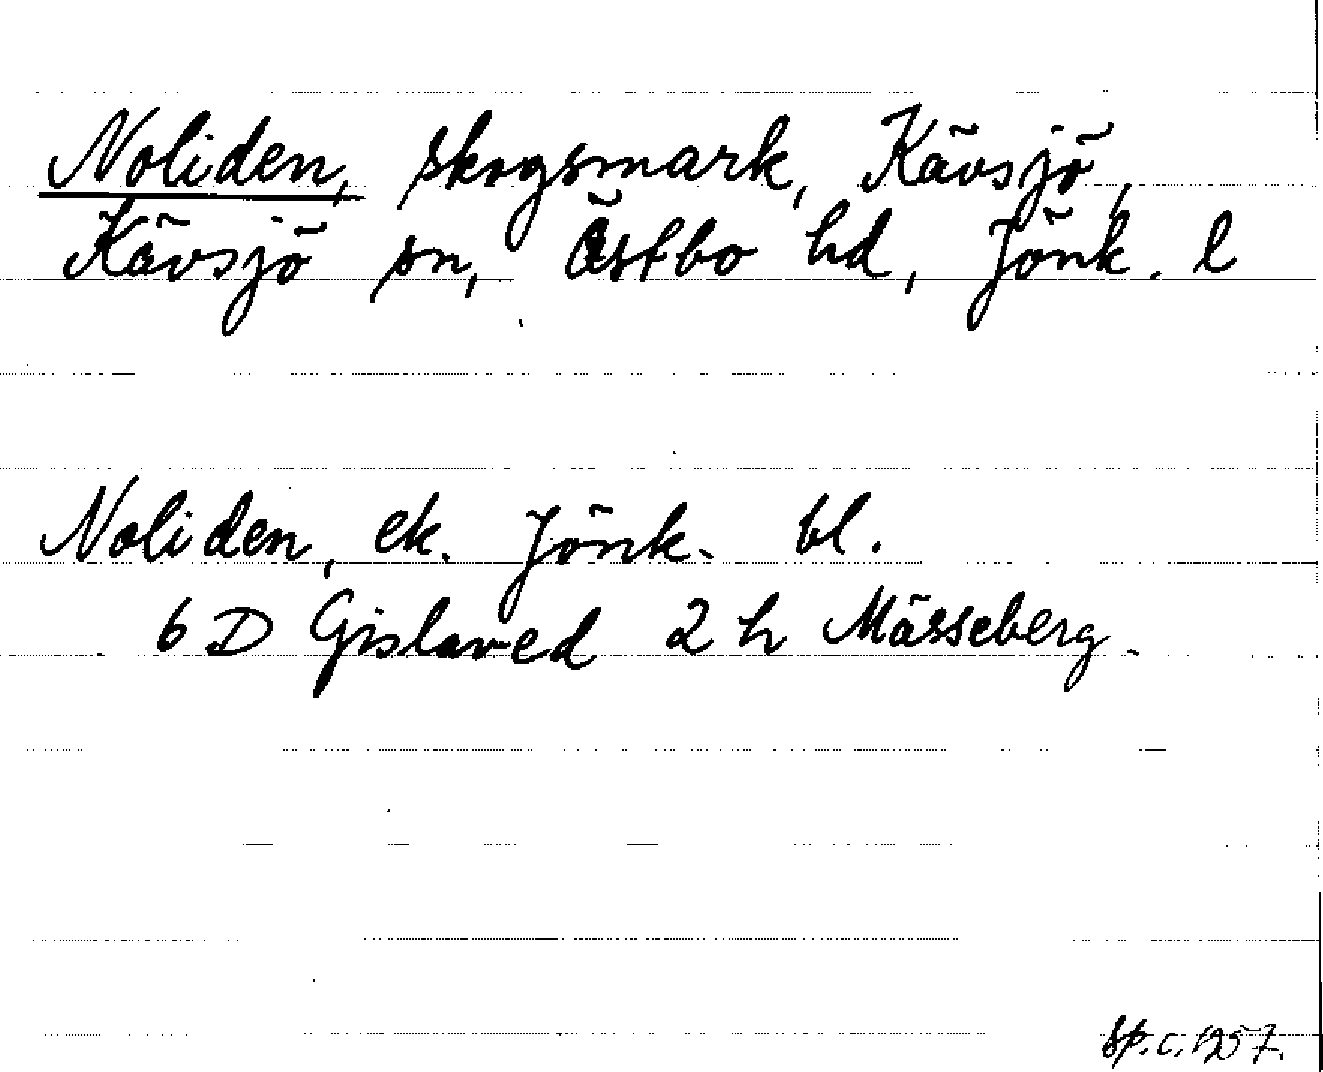 Noliden, skogsmark, Kävsjö,
Kävsjö sn, Östbo hd, Jönk. l
Noliden, ek. Jönk. bl.
6 D Gislaved 2 h Mässeberg.
Sp. c. 1957.